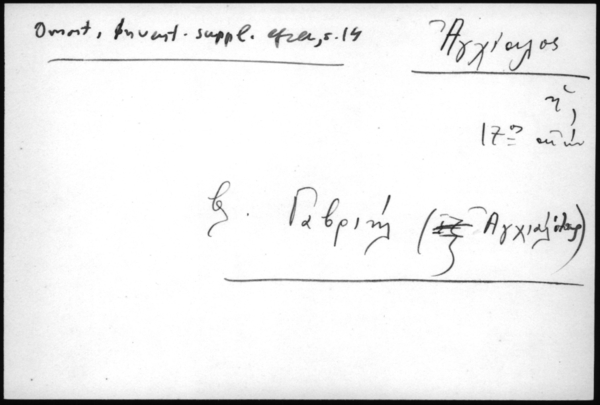 Omont, Invent. suppl. grec, s. 14
Ἀγχίαλος
ἤ,
17ος αἰών
βλ. Γαβριήλ (ἐξ Ἀγχιάλου)